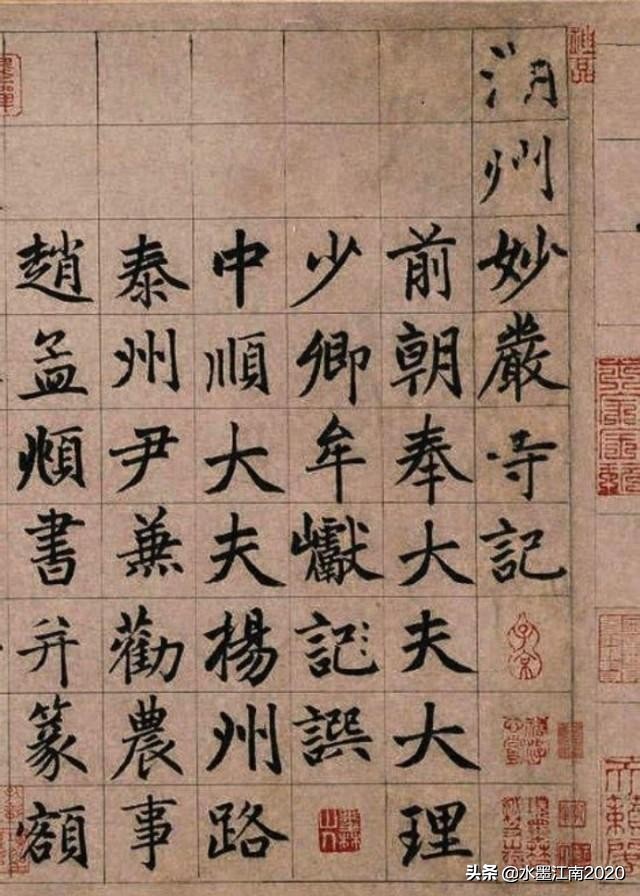 湖州妙嚴寺記
前朝奉大夫大理
少卿牟巘記譔
中順大夫楊州路
泰州尹兼勸農事
趙孟頫書并篆額
头条 @水墨江南2020